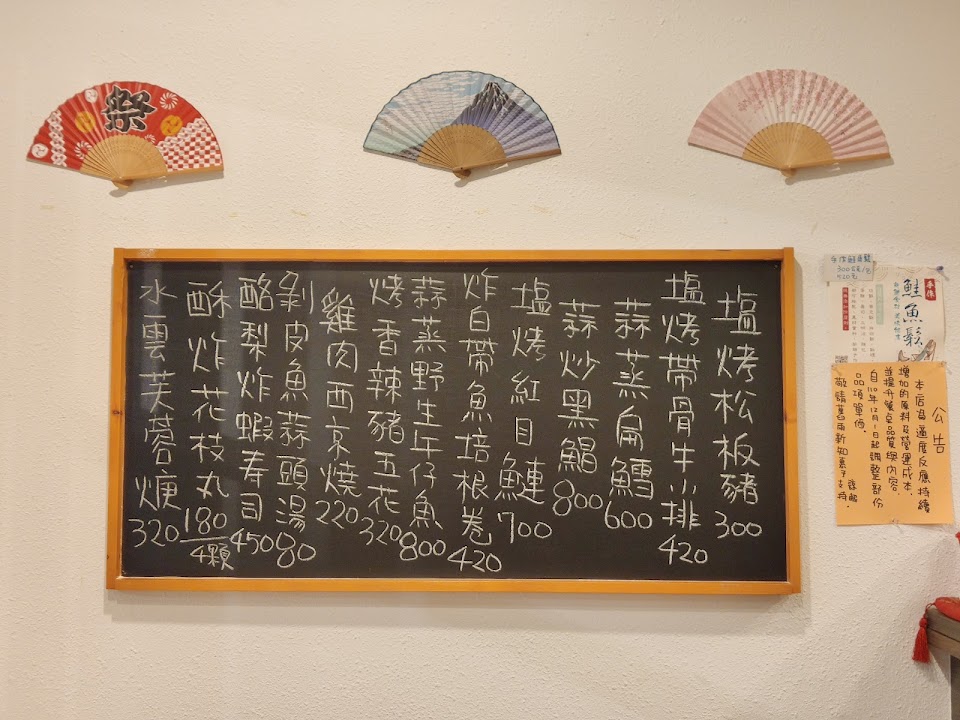 祭
塩烤松板豬 300
塩烤帶骨牛小排 420
蒜蒸扁鱈 600
蒜炒黑鯧 800
塩烤紅目鰱 700
炸白帶魚培根卷 420
蒜蒸野生午仔魚 800
烤香辣豬五花 320
雞肉西京燒 220
剝皮魚蒜頭湯 80
酪梨炸蝦寿司 450
酥炸花枝丸 180/4顆
水雲芙蓉焿 320
手作鮭魚鬆
手作
鮭魚鬆
公告
本店為適度反應持續
增加的原料及營運成本,
並提升餐点品質與內容,
自110年12月1日起調整部份
品項單価,
敬請舊雨新知惠予支持。